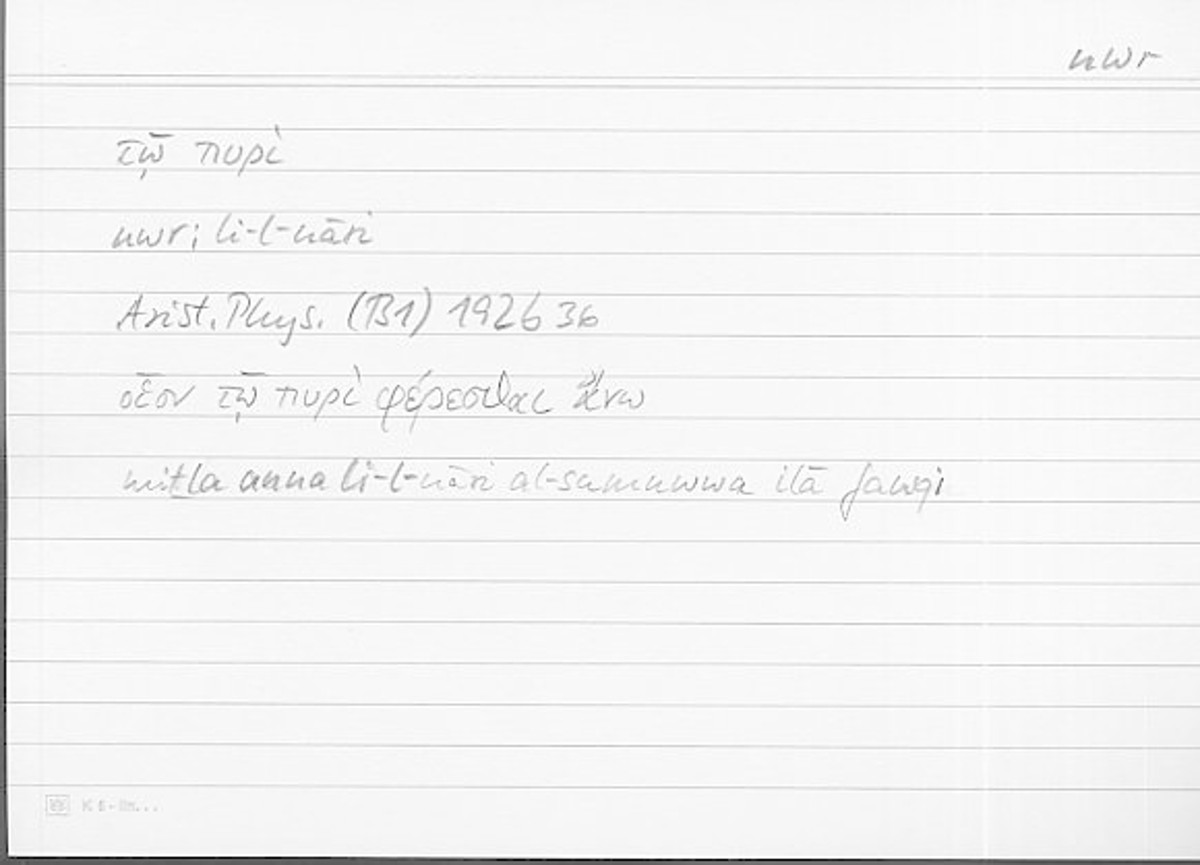 nwr
τῷ πυρὶ
nwr; li-l-nāri
Arist. Phys. (B1) 192b 36
οἷον τῷ πυρὶ φέρεσθαι ἄνω
miṯla anna li-l-nāri al-sumuwwa ilā fawqi